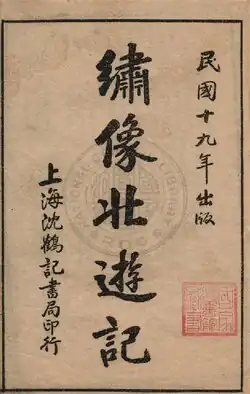 民國十九年出版
繡像壯遊記
上海沈鶴記書局印行